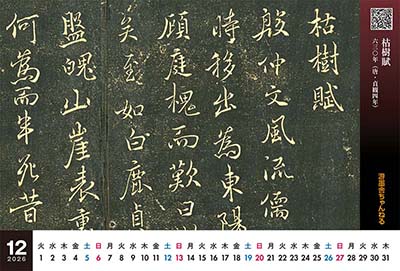 枯樹賦
六三〇年(唐・貞観四年)
游墨舎ちゃんねる
枯樹賦
殷仲文風流儒
時移出為東陽
顧庭槐而歎曰
矣至如白鹿貞
盤魄山崖表裏
何為而半死昔
12
2026
火 水 木 金 土 日 月 火 水 木 金 土 日 月 火 水 木 金 土 日 月 火 水 木 金 土 日 月 火 水 木
1 2 3 4 5 6 7 8 9 10 11 12 13 14 15 16 17 18 19 20 21 22 23 24 25 26 27 28 29 30 31